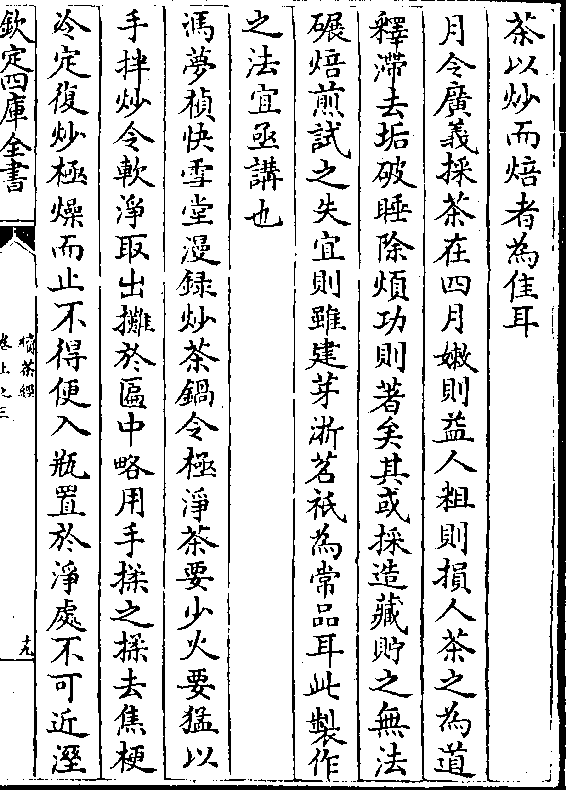 茶以炒而焙者為佳耳
月令廣義採茶在四月嫩則益人粗則損人茶之為道
釋滯去垢破睡除煩功則著矣其或採造藏貯之無法
碾焙煎試之失宜則雖建芽浙茗祗為常品耳此製作
之法宜亟講也
馮夢楨快雪堂漫録炒茶鍋令極淨茶要少火要猛以
手拌炒令軟淨取出攤於匾中略用手揉之揉去焦梗
冷定復炒極燥而止不得便入瓶置於淨處不可近溼
欽定四庫全書
續茶經
卷上之三
十九